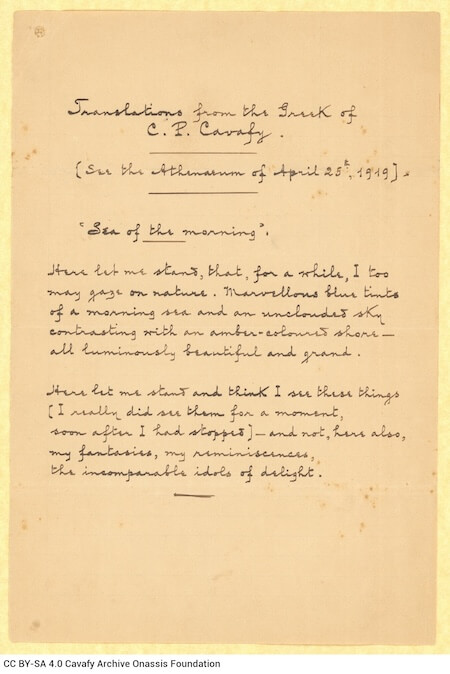 Translations from the Greek of
C. P. Cavafy.
[See the Athenaeum of April 25th, 1919].
"Sea of the morning".
Here let me stand, that, for a while, I too
may gaze on nature. Marvellous blue tints
of a morning sea and an unclouded sky
contrasting with an amber-coloured shore—
all luminously beautiful and grand.
Here let me stand and think I see these things
[I really did see them for a moment,
soon after I had stopped]—and not, here also,
my fantasies, my reminiscences,
the incomparable idols of delight.
CC BY-SA 4.0 Cavafy Archive Onassis Foundation